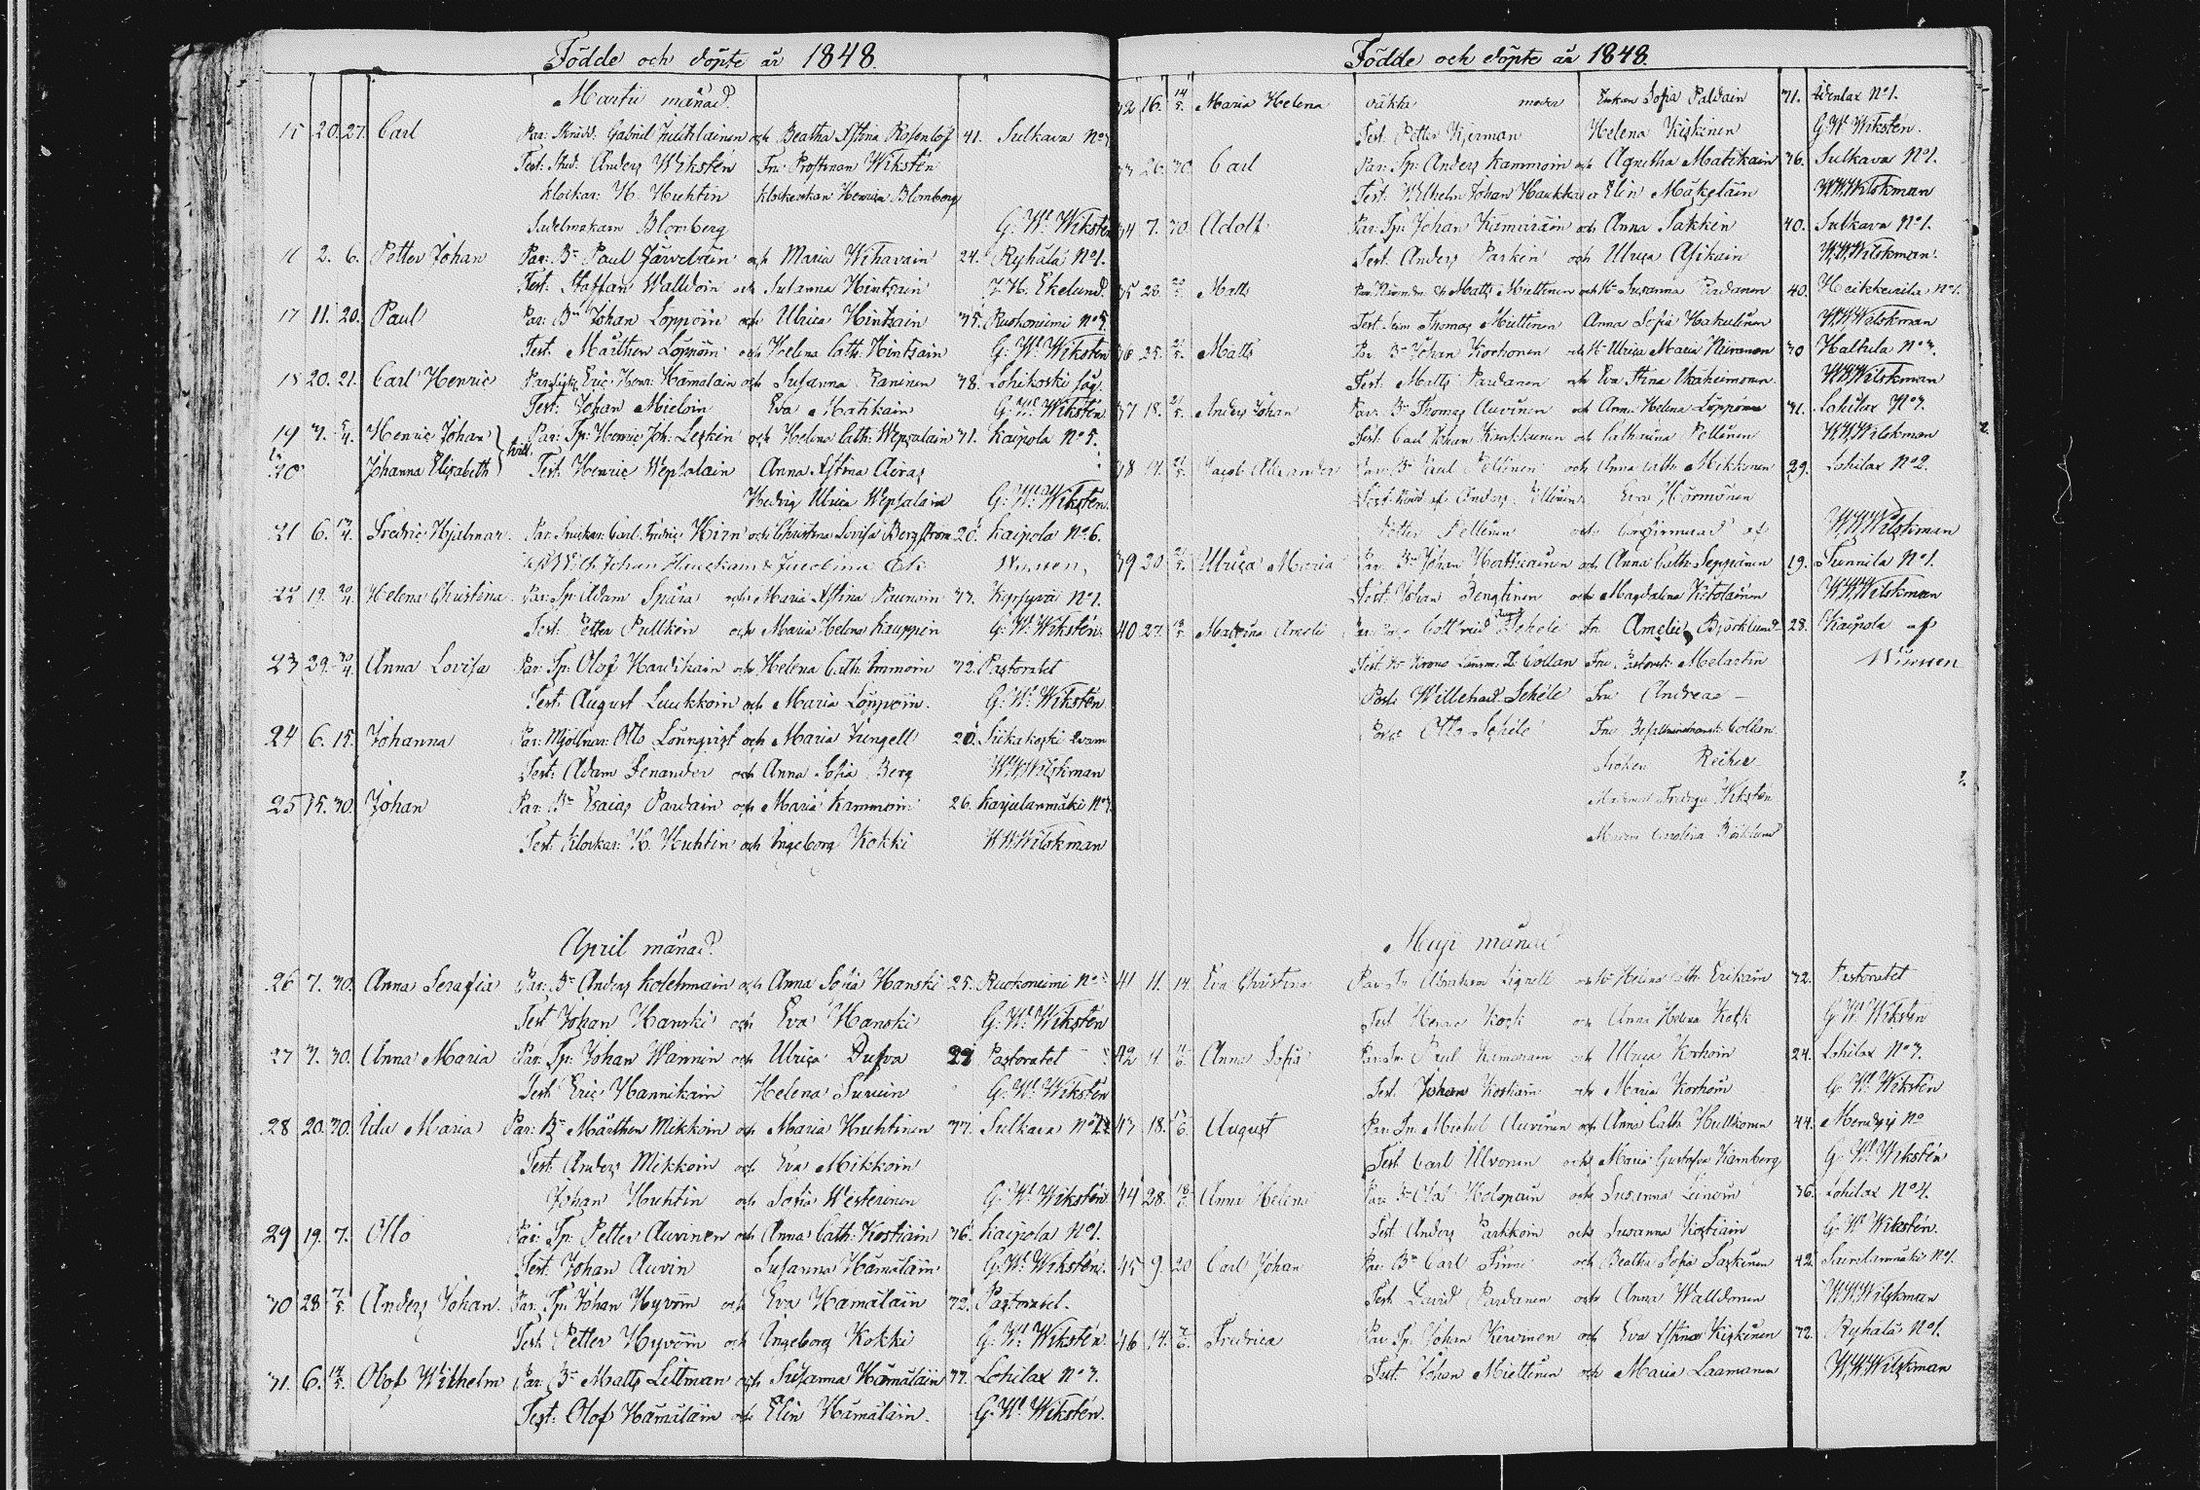 Födde och döpte år 1848.
Martii månad.
15 20. 27. Carl Par: Skrädd. Gabriel Huihlainen och Beatha Stina Rosenlöf 41. Sulkava No
Test: Stud. Anders Wikstén Fru Prostinnan Wikstén
Klockar: H. Huhtin Klockerskan Henrica Blomberg
Sadelmakarn Blomberg G. Wm Wikstén
16 2. 6. Petter Johan Par: Bn Paul Järveläin och Maria Wihavain 24. Ryhälä No 1.
Test: Staffan Walldoin och Susanna Hintsain J. H. Ekelund.
17 11. 20. Paul Par: Bn Johan Loppöin och Ulrica Hintsain 35. Ruokoniemi No 5.
Test. Mårthen Löppöin och Helena Cath: Hintsain G. Wm Wikstén
18 20. 21. Carl Henric Eric Henr: Hämäläin och Susanna Raninen 38. Lohikoski såg.
Test: Johan Mieloin Eva Matikain G. Wm Wikstén.
19 Henric Johan Par: Sp: Henric Joh: Leskin och Helena Cath: Wepsäläin 31. Kaipola No 5.
20 Johanna Elisabeth Test. Henric Wepsäläin Anna Stina Airas
Hedvig Ulrica Wepsäläin G. Wm Wikstén.
21 6. Fredric Hjalmar Par. Carl Fredric Hirn och Christina Lovisa Bergström 20. Kaipola No 6.
Johan
22 19. Helena Christina Par: Sp: Adam Spåra och Maria Stina Paunoin 33. No 1.
Test. Petter Pulkkin och Maria Helena Kauppin G. Wm Wikstén.
23 29. Anna Lovisa Par: Sp: Olof Haverikain och Helena Cath: Immoin 32. Pastoratet
Test: August Luukkoin och Maria Loppöin. G. Wm Wikstén
24 6. 15. Johanna Par: Mjölnar: Otto Lönnqvist och Maria Jungell 20. Siikakoski qvarn
Test: Adam Senander och Anna Sofia Berg W:W:Wilskman
25 15. 30. Johan Par: Bn Esaias Pardain och Maria Kammoin 26. Karjulanmäki No 3.
Test. Klockar: H. Huhtin och Ingeborg Kokki W:W:Wilskman
April månad.
26 7. 30. Anna Serafia Par: Bn Anders Kolehmain och Anna Sofia Hanski 25. Ruokoniemi No
Test Johan Hanski och Eva Hanski G. Wm Wikstén
27 3. 30. Anna Maria Par: Sp: Johan Wännin och Ulrica Dufva 29 Pastoratet
Test: Eric Hannikain Helena G. Wm Wikstén
28 20. 30. Ida Maria Par: Bn Mårthen Mikkoin och Maria Huhtinen 33. Sulkava No
Test: Anders Mikkoin och Eva Mikkoin
Johan Huhtin och Sofia Westerinen G. Wm Wikstén
29 19. 7. Otto Par: Sp: Petter Auvinen och Anna Cath: Kostiain 36. Kaipola No 1.
Test: Johan Auvin Susanna Hämäläin G. Wm Wikstén.
30 28 7/5. Anders Johan. Par: Sp: Johan Hyvöin och Eva Hämäläin 32. Pastoratet.
Test: Petter Hyvöin och Ingeborg Kokki G. Wm Wikstén.
31. 6. Olof Wilhelm Par: Bn Matts Littman och Susanna Hämäläin 33. Lohilax No 3.
Test: Olof Hämäläin och Elin Hämäläin. G. Wm Wikstén.
Födde och döpte år 1848.
32 16. 14/5. Maria Helena oäkta moder Enkan Sofia Paldain 31. Idenlax No 1.
Test. Petter Kjerman Helena Kiskinen G. Wm Wikstén.
33 26. 30. Carl Par: Sp: Anders Kammoin och Agnetha Matikain 36. Sulkava No 1.
Test. Wilhelm Johan Haukka Elin Mäkeläin W:W:Wilskman
34 7. 30. Adolf Par: Sp: Johan Kämäräin och Anna Sakkin 40. Sulkava No 1.
Test. Anders Parkin och Ulrica Asikain W:W:Wilskman.
35 28. Matts Matts Miettinen och Susanna Pardanen 40. Heikkurila No 1.
Test. Thomas Miettinen Anna Sofia Hakulinen W:W:Wilskman
36 25. Matts Par. Bn Johan Korhonen och Ulrica Maria Niiranen 30 Halttula No 3.
Test. Matts Pardanen och Eva Stina Ukaheimonen W:W:Wilskman
37 18. Anders Johan Par. Bn Thomas Auvinen och Anna Helena Löppönen 31. Lohilax No 3.
Test. Carl Johan och Catharina Pellinen W:W:Wilskman
38 Jacob Alexander Par: Bn Paul Pellinen och Anna Cath: Mikkonen 29. Lohilax No 2.
Anders Eva Härmönen
Petter Pellinen och W:W:Wilskman
39 20 Ulrica Maria Par Bn Johan Hartikainen och Anna Cath: Seppänen 19. Tunnila No 1.
Test. Johan Bengtinen och Magdalena Kietoläinen W:W:Wilskman
40 27. Amelie Schéle Fru Amelie Björklund 28. Kaipola
Test. Hr Krono Länsm. Z. Collan Fru Melartin
Willehard Schéle Fru Andreas
Otto Schéle Fru Collan
Fröken Reiher
Fredrique Wikstén
Carolina Björklund
Maji månad
41 11. 14. Eva Christina Par: Abraham Lignell och Helena Cath: Erikain 32. Pastoratet
Test Henric Kock och Anna Helena Kock G. Wm Wikstén
42 4 Anna Sofia Par: Paul Kämäräin och Ulrica Korhoin 24. Lohilax No 3.
Test. Johan Kostiain och Maria Korhoin G. Wm Wikstén
43 18. August Par: Michel Auvinen och Anna Cath: Hullkonen 44.
Test Carl Ulvonen och Maria Gustafva Karnberg G. Wm Wikstén
44 28. Anna Helena Par: Holopain och Susanna Leinoin 36. Lohilax No 4.
Test Anders Parkkoin och Susanna Kostiain G. Wm Wikstén.
45 9. 20 Carl Johan Par: Bn Carl och Beatha Sofia Laskinen 42. No 1.
Test. David Pardanen och Anna Walldonen W:W:Wilskman
46 14. Fredrica Par Sp: Johan Kervinen och Eva Stina Kiiskinen 32. Ryhälä No 1.
Test: Johan Miettinen och Maria Laamanen W:W:Wilskman